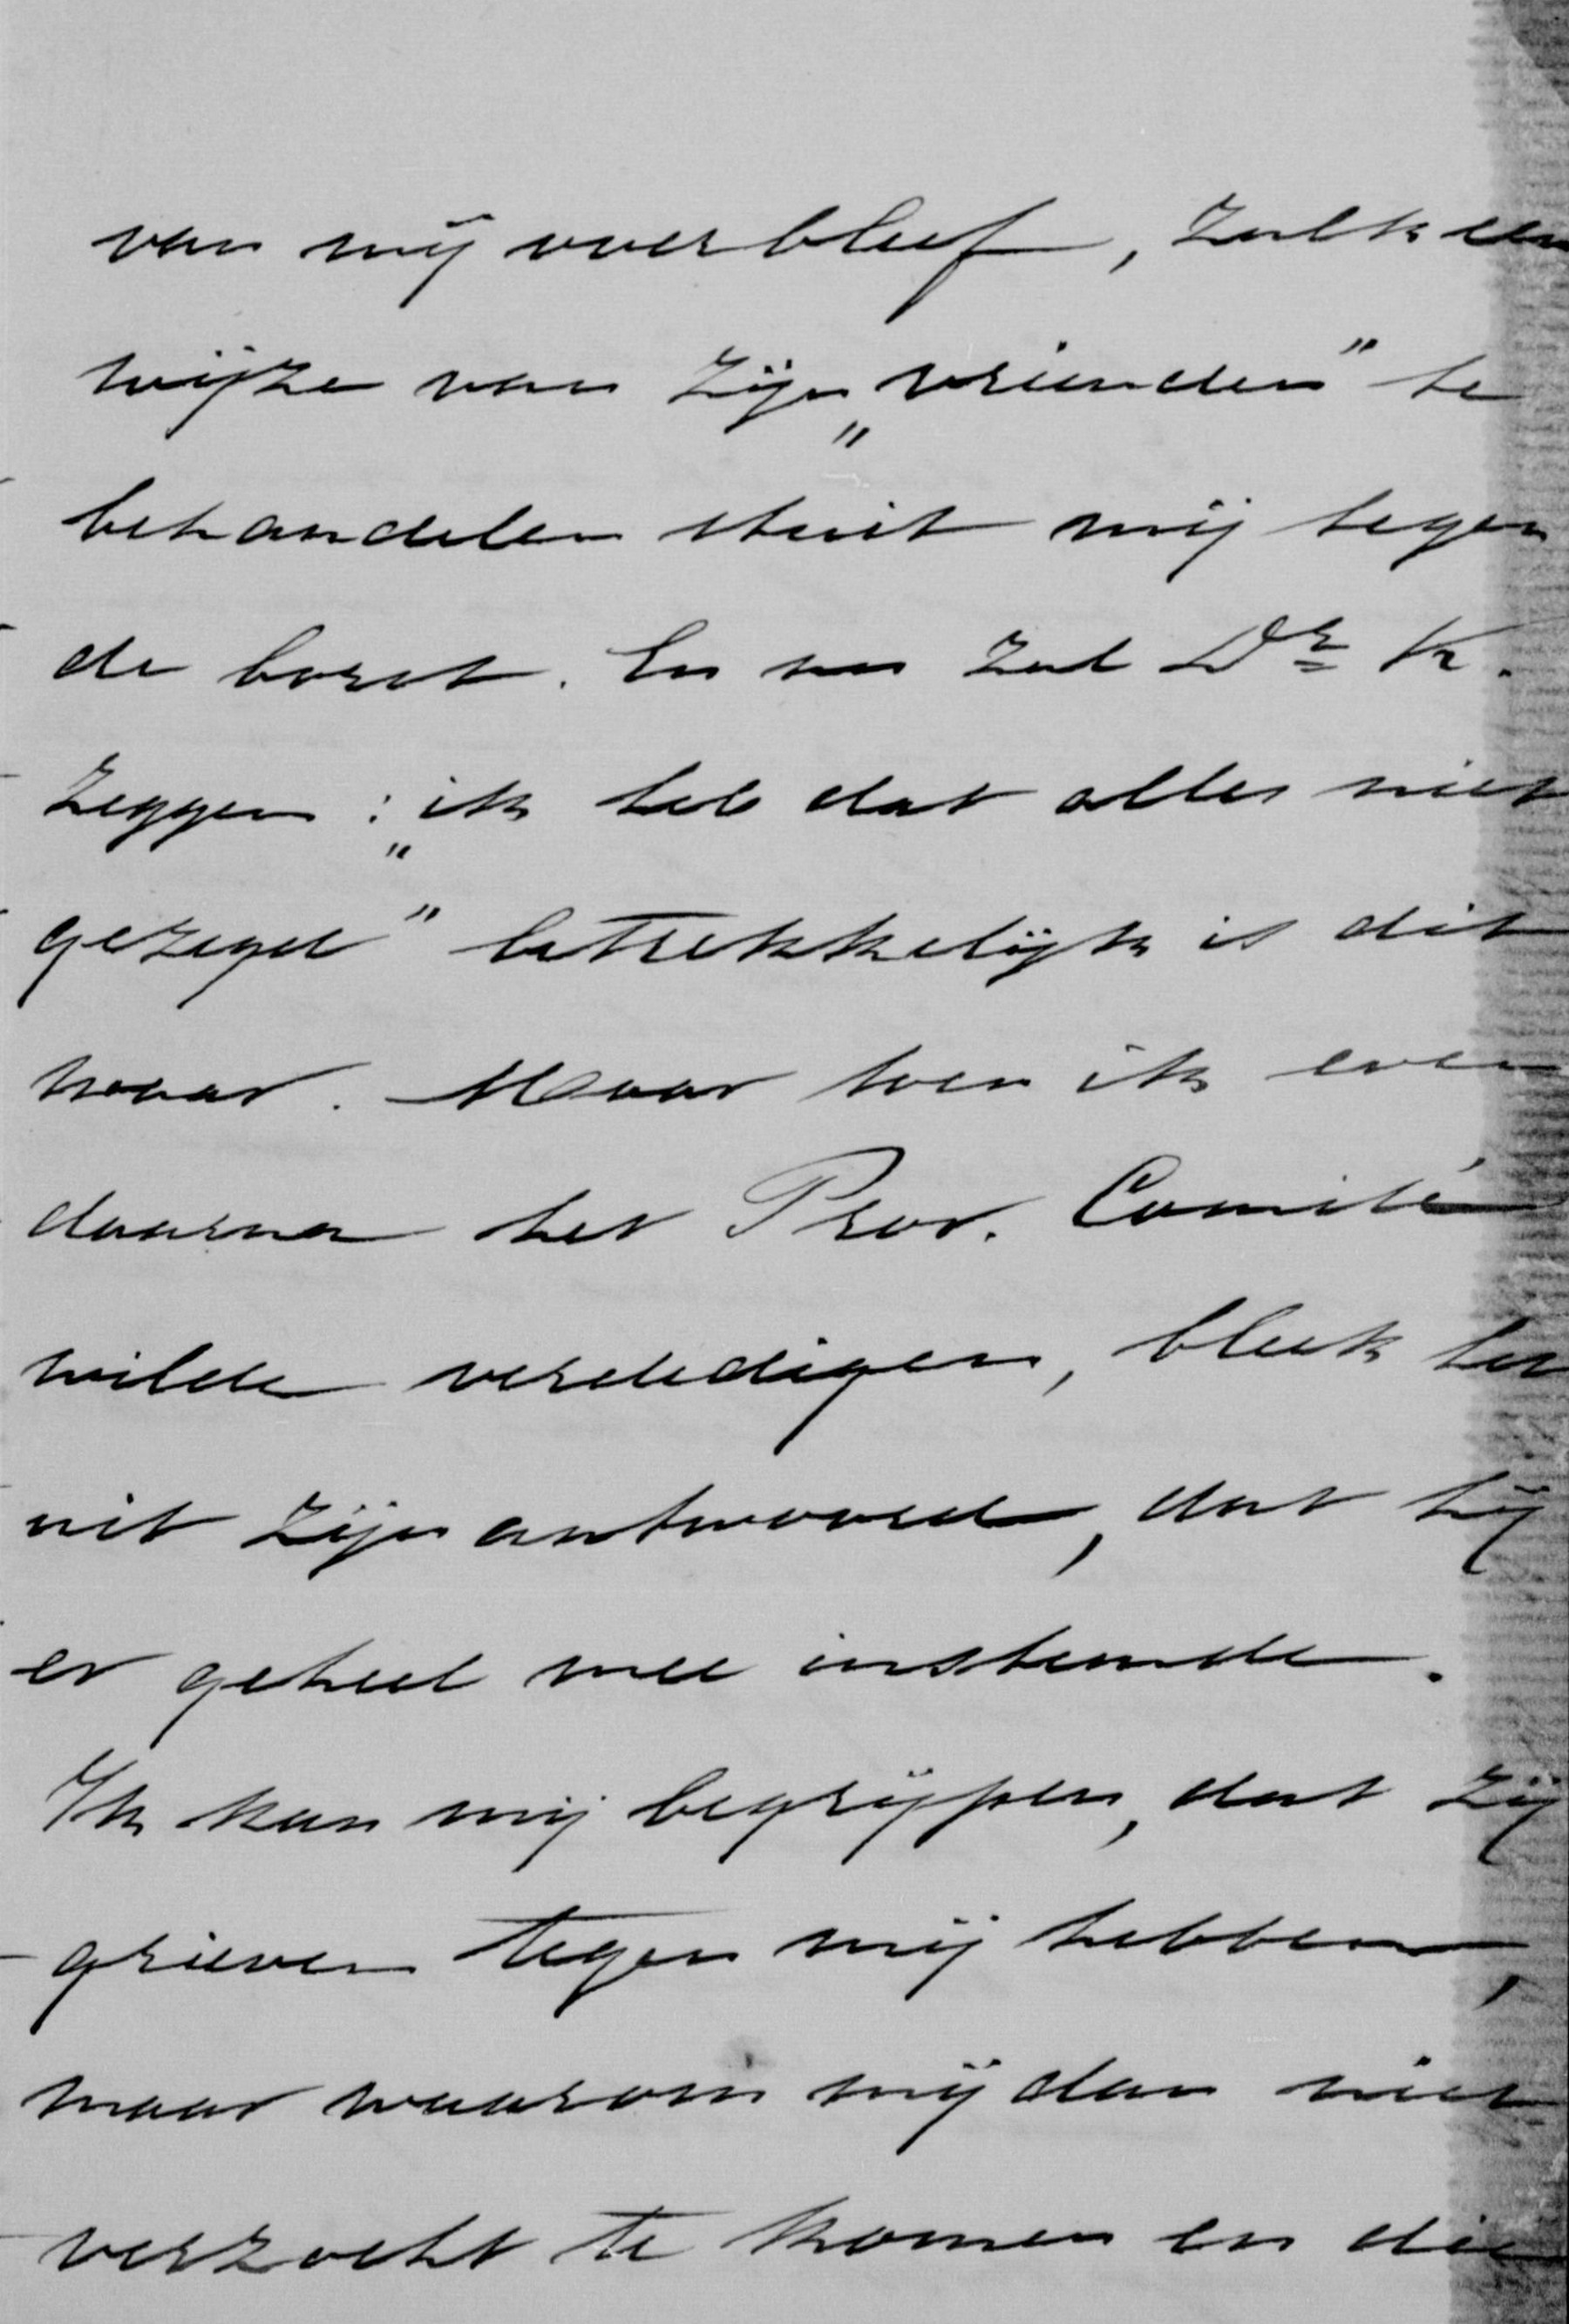 van mij overbleef, zulk een
wijze van zijn „vrienden” te
behandelen stuit mij tegen
de borst. En nu zal Dr K.
zeggen: „ik heb dat alles niet
gezegd” betrekkelijk is dit
waar. Maar toen ik even
daarna het Prov. Comité
wilde verdedigen, bleek het
uit zijn antwoord, dat hij
er geheel mee instemde.
Ik kan mij begrijpen, dat zij
grieven tegen mij hebben,
maar waarom mij dan niet
verzocht te komen en die